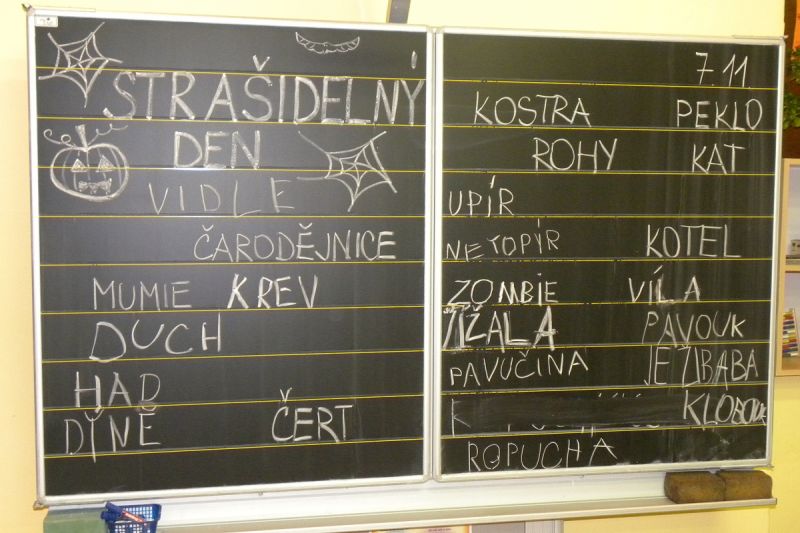 STRAŠIDELNÝ
DEN
VIDLE
ČARODĚJNICE
MUMIE KREV
DUCH
HAD
DÝNĚ ČERT
7.11.
KOSTRA PEKLO
ROHY KAT
UPÍR
NETOPÝR KOTEL
ZOMBIE VÍLA
ŽÍŽALA PAVOUK
PAVUČINA JEŽIBABA
KLOBOUK
ROPUCHA